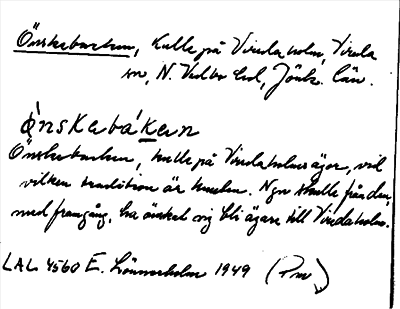 Önskebacken, kulle på Vireda holm, Vireda
sn, N. Vedbo hd, Jönk. län.
Önskebáken
Önskebacken, kulle på Viredaholms ägor, vid
vilken tradition är knuten. Ngn skulle från den,
med framgång, ha önskat sig bli ägare till Viredaholm.
LAL 4560 E. Lönnerholm 1949 (Pm)